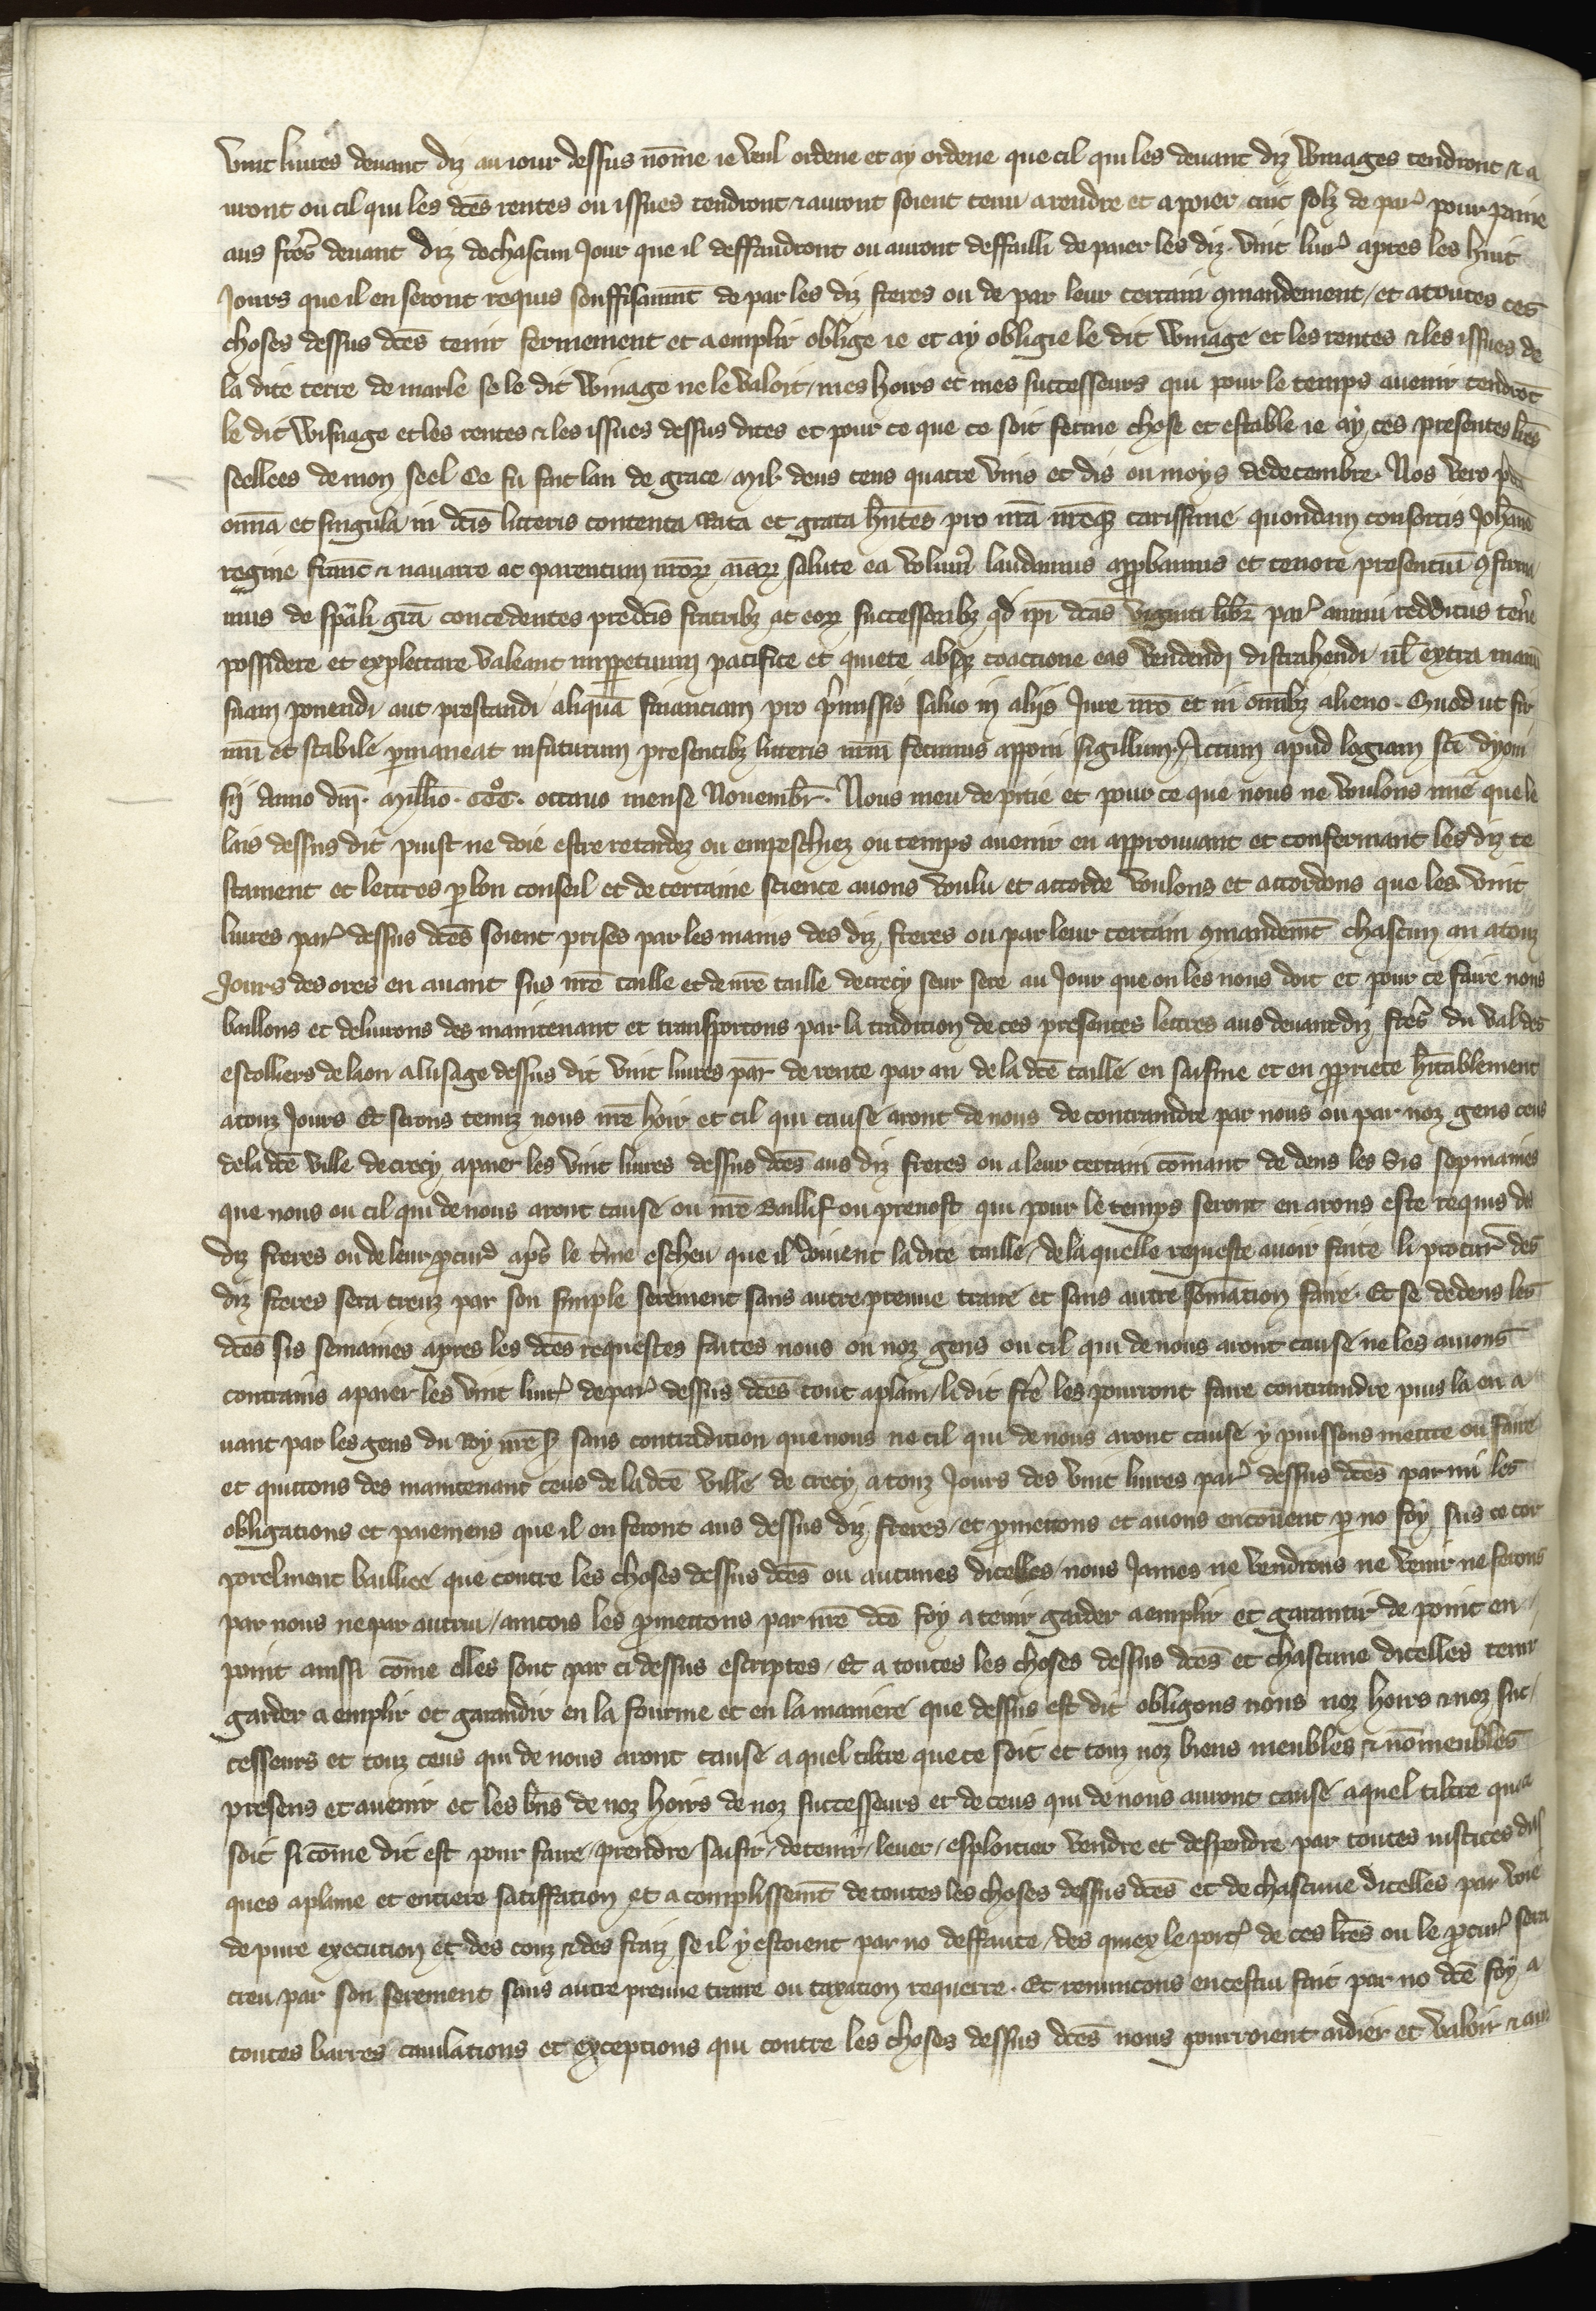 vint livres devant diz au iour dessus nōme ie veul ordene et ay ordene que cil qui les devant diz Winages tendront & a
uront ou cil qui les dc̄es rentes ou issues tendront & auront soient tenu a rendre et a poier cinc solz de par' pour paine
aus frēs devant diz de chascun Jour que il deffaudront ou auront deffailli de paier les diz vint liur' apres les huit
Jours que il en seront requis souffisanmt̄ de par les diz freres ou de par leur certain ꝯmandement / et a toutes ces
choses dessus dc̄es tenir fermement et aemplir oblige ie et ay obligie le dit Winage et les rentes & les issues de
la dite terre de marle se le dit Winage ne le valoit / mes hoirs et mes successeurs qui pour le temps avenir tendrōt
le dit Wisnage et les rentes & les issues dessus dites et pour ce que ce soit ferme chose et estable ie ay ces presentes lr̄es
seellees de mon seel Ce fu fait lan de grace mil deus cens quatre vins et dis ou moys de decembre. Nos vero
om̄ia et singula in dc̄is litteris contenta Rata et grata hn̄tes pro nr̄a nr̄eqꝫ carissime quondam consortis Joh̄anne
regine franc̄ & navarre ac parentum nr̄orꝝ aīarꝝ salute ea volum' laudamus aꝓbamus et tenore presentiū ꝯfirma
mus de sp̄ali gr̄a concedentes predc̄is fratribꝫ ac eorꝝ successoribꝫ qd̄ ip̄i dc̄as viginti libr̄ par' annui redditus ten̄e
possidere et explectare valeant inꝑpetuum pacifice et quiete absqꝫ coactione eas vendendi distrahendi ul̄ extra manū
suam ponendi aut prestandi aliquā financiam pro p̄missis salvo in aliis Jure nr̄o et in om̄ibꝫ alieno. Quod ut fir
mū et stabile ꝑmaneat in futurum presentibꝫ litteris nr̄m fecimus apponi sigillum. Actum apud logiam sc̄i dyoni
sii Anno dn̄i. Mill̄io. CCC°. octavo mense Novembr̄. Nous meu de pitie et pour ce que nous ne voulons mie que le
lais dessus dit puist ne doie estre retardez ou empeschiez ou temps avenir en approuvant et confermant les diz te
stament et lettres ꝑ bon conseil et de certaine science avons voulu et accorde voulons et accordons que les vint
livres par' dessus dc̄es soient prises par les mains des diz freres ou par leur certain ꝯmandemt̄ chascun an a touz
Jours des ores en avant sus nr̄e taille et de nr̄e taille de crecy seur sere au Jour que on les nous doit et pour ce faire nous
baillons et delivrons des maintenant et transportons par la tradition de ces presentes lettres aus devant diz frēs du val des
escolliers de laon a lusage dessus dit vint livres par̄ de rente par an de la dc̄e taille en saisine et en ꝓpriete hīt̄ablement
a touz Jours Et serons tenuz nous nr̄e hoir et cil qui cause aront de nous de contraindre par nous ou par noz gens ceus
de la dc̄e ville de crecy a paier les vint livres dessus dc̄es aus diz freres ou a leur certain cōmant de dens les sis sepmaines
que nous ou cil qui de nous aront cause ou nr̄e Baillif ou prevost qui pour le temps seront en arons este requis des
diz freres ou de leur ꝓcur' ap̄s le t̄me escheu que il doivent la dite taille / de la quelle requeste avoir faite li procur̄ des
diz freres sera creuz par son simple serement sans autre preuve traire et sans autre sōmation faire. Et se de dens les
dc̄es sis semaines apres les dc̄es requestes faites nous ou noz gens ou cil qui de nous aront cause ne les avions
contrains a paier les vint liur' de par' dessus dc̄es tout a plain / le dit frē les pourront faire contraindre puis la en a
vant par les gens du Roy nr̄e s' sans contradition que nous ne cil qui de nous aront cause y puissons mettre ou faire
et quittons des maintenant ceus de la dc̄e ville de crecy a touz Jours des vint livres par' dessus dc̄es par mi les
obligations et paiemens que il en feront aus dessus diz freres / et ꝓmettons et avons encōvent ꝑ no foy sus ce cor
porelment bailliee que contre les choses dessus dc̄es ou aucunes dicelles nous James ne vendrons ne venir ne ferons
par nous ne par autrui / aincois les ꝓmettons par nr̄e dc̄e foy a tenir garder aemplir et garantir de point en
point aussi cōme elles sont par ci dessus escriptes / Et a toutes les choses dessus dc̄es et chascune dicelles tenir
garder aemplir et garandir en la fourme et en la maniere que dessus est dit obligons nous noz hoirs & noz suc
cesseurs et touz ceus qui de nous aront cause a quel tiltre que ce soit et touz noz biens meubles & nōmeubles
presens et avenir et les bn̄s de noz hoirs de noz successeurs et de ceus qui de nous auront cause a quel tiltre que ce
soit si cōme dit est pour faire / prendre / saisir / detenir / lever / esploitier vendre et despendre par toutes iustices dus
ques a plaine et entiere satiffation et acomplissemt̄ de toutes les choses dessus dc̄es et de chascune dicelles par voie
de pure execution et des couz & des fraiz se il y estoient par no deffaute / des quiex le port' de ces lr̄es ou le ꝓcur' sera
creu par son serement sans autre preuve traire ou taxation requerre. Et renuncons en cestui fait par no dc̄e foy a
toutes barres cavilations et exceptions qui contre les choses dessus dc̄es nous pourroient aidier et valoir & aus